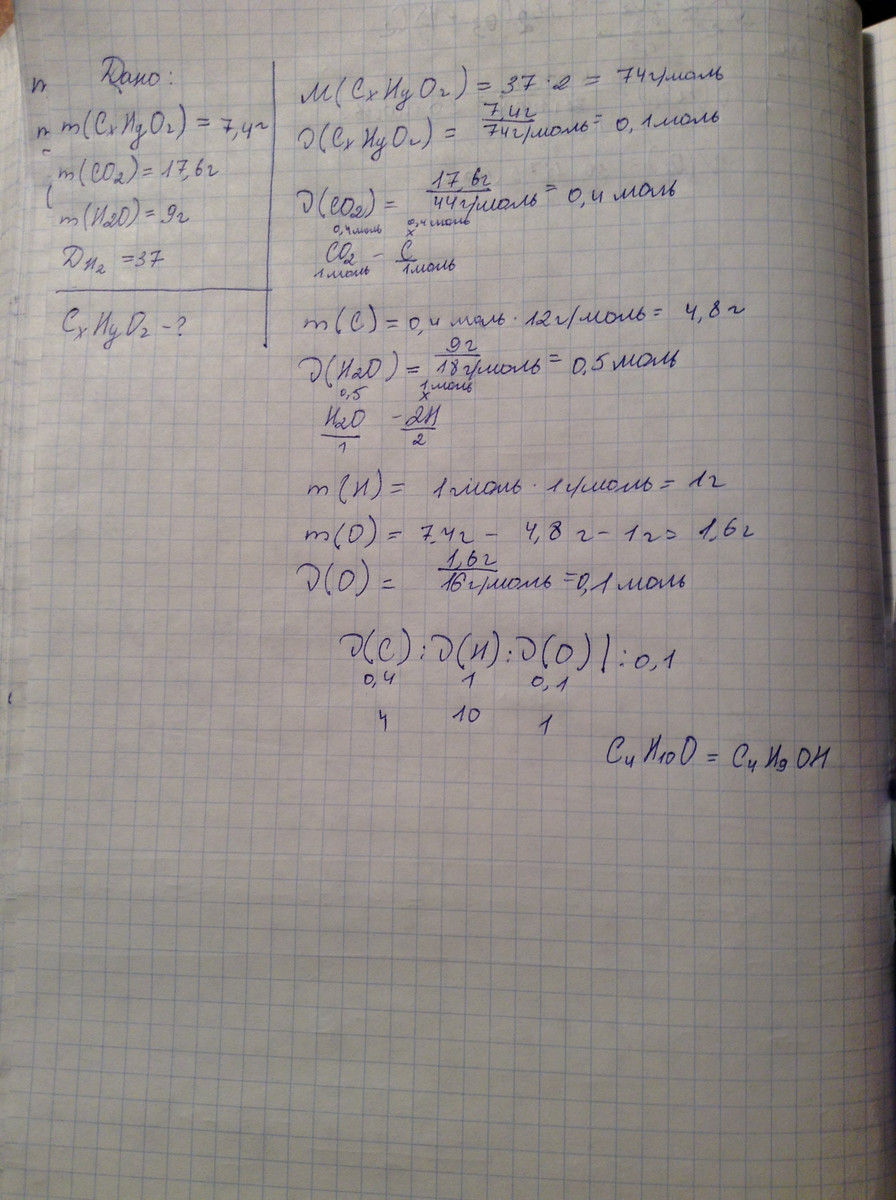 Дано:
m(CxHyOz) = 7,4г
m(CO2) = 17,6г
m(H2O) = 9г
DH2 = 37
CxHyOz - ?
M(CxHyOz) = 37 · 2 = 74г/моль
ν(CxHyOz) = 7,4г / 74г/моль = 0,1 моль
ν(CO2) = 17,6г / 44г/моль = 0,4 моль
0,4моль 0,4моль
x
CO2 - C
1моль 1моль
m(C) = 0,4 моль · 12г/моль = 4,8г
ν(H2O) = 9г / 18г/моль = 0,5 моль
0,5 1моль
x
H2O - 2H
1 2
m(H) = 1 моль · 1г/моль = 1г
m(O) = 7,4г - 4,8г - 1г = 1,6г
ν(O) = 1,6г / 16г/моль = 0,1 моль
ν(C) : ν(H) : ν(O) | : 0,1
0,4 1 0,1
4 10 1
C4H10O = C4H9OH